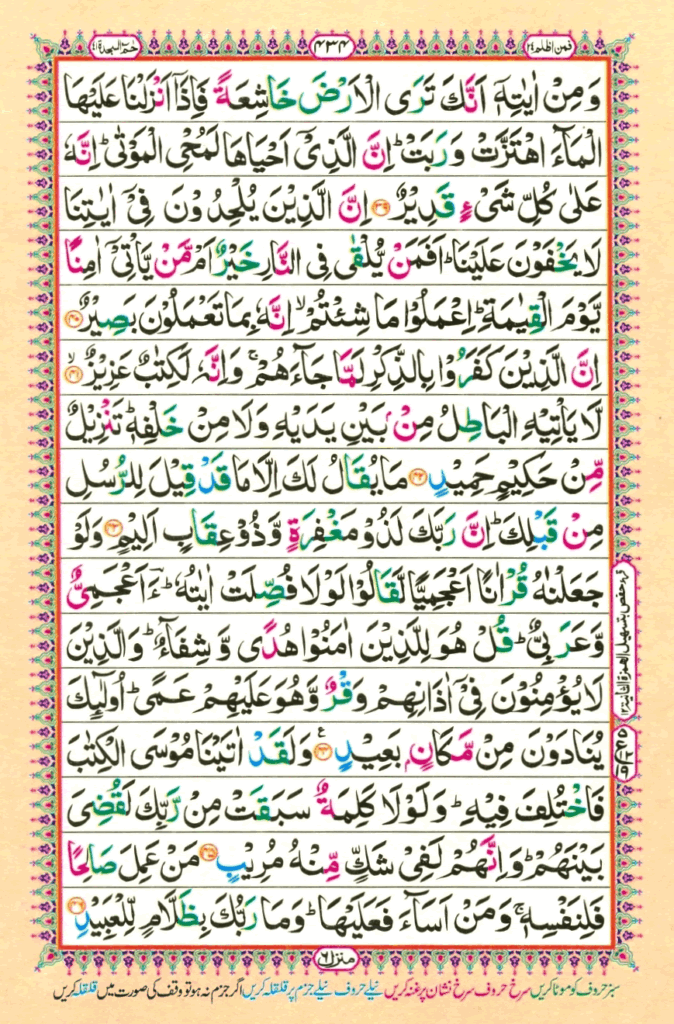 فمن اظلم ٢٤
٤٣٤
حٰمٓ السجدة ٤١
وَمِنْ اٰیٰتِهٖۤ اَنَّكَ تَرَی الْاَرْضَ خَاشِعَةً فَاِذَاۤ اَنْزَلْنَا عَلَیْهَا
الْمَآءَ اهْتَزَّتْ وَرَبَتْ ؕ اِنَّ الَّذِیْۤ اَحْیَاهَا لَمُحْیِ الْمَوْتٰی ؕ اِنَّهٗ
عَلٰی كُلِّ شَیْءٍ قَدِیْرٌ ﴿٣٩﴾ اِنَّ الَّذِیْنَ یُلْحِدُوْنَ فِیْۤ اٰیٰتِنَا
لَا یَخْفَوْنَ عَلَیْنَا ؕ اَفَمَنْ یُّلْقٰی فِی النَّارِ خَیْرٌ اَمْ مَّنْ یَّاْتِیْۤ اٰمِنًا
یَّوْمَ الْقِیٰمَةِ ؕ اِعْمَلُوْا مَا شِئْتُمْ ۙ اِنَّهٗ بِمَا تَعْمَلُوْنَ بَصِیْرٌ ﴿٤٠﴾
اِنَّ الَّذِیْنَ كَفَرُوْا بِالذِّكْرِ لَمَّا جَآءَهُمْ ۚ وَاِنَّهٗ لَكِتٰبٌ عَزِیْزٌ ﴿٤١﴾ۙ
لَّا یَاْتِیْهِ الْبَاطِلُ مِنْۢ بَیْنِ یَدَیْهِ وَلَا مِنْ خَلْفِهٖ ؕ تَنْزِیْلٌ
مِّنْ حَكِیْمٍ حَمِیْدٍ ﴿٤٢﴾ مَا یُقَالُ لَكَ اِلَّا مَا قَدْ قِیْلَ لِلرُّسُلِ
مِنْ قَبْلِكَ ؕ اِنَّ رَبَّكَ لَذُوْ مَغْفِرَةٍ وَّذُوْ عِقَابٍ اَلِیْمٍ ﴿٤٣﴾ وَلَوْ
جَعَلْنٰهُ قُرْاٰنًا اَعْجَمِیًّا لَّقَالُوْا لَوْلَا فُصِّلَتْ اٰیٰتُهٗ ؕ ءَؔاَعْجَمِیٌّ
وَّعَرَبِیٌّ ؕ قُلْ هُوَ لِلَّذِیْنَ اٰمَنُوْا هُدًی وَّشِفَآءٌ ؕ وَالَّذِیْنَ
لَا یُؤْمِنُوْنَ فِیْۤ اٰذَانِهِمْ وَقْرٌ وَّهُوَ عَلَیْهِمْ عَمًی ؕ اُولٰٓىِٕكَ
یُنَادَوْنَ مِنْ مَّكَانٍۭ بَعِیْدٍ ﴿٤٤﴾ وَلَقَدْ اٰتَیْنَا مُوْسَی الْكِتٰبَ
فَاخْتُلِفَ فِیْهِ ؕ وَلَوْلَا كَلِمَةٌ سَبَقَتْ مِنْ رَّبِّكَ لَقُضِیَ
بَیْنَهُمْ ؕ وَاِنَّهُمْ لَفِیْ شَكٍّ مِّنْهُ مُرِیْبٍ ﴿٤٥﴾ مَنْ عَمِلَ صَالِحًا
فَلِنَفْسِهٖ ۚ وَمَنْ اَسَآءَ فَعَلَیْهَا ؕ وَمَا رَبُّكَ بِظَلَّامٍ لِّلْعَبِیْدِ ﴿٤٦﴾
منزل ٦
سبز حروف کو موٹا کریں سرخ حروف سرخ نشان پر غنہ کریں نیلے حروف نیلے جزم پر قلقلہ کریں اگر جزم نہ ہو تو وقف کی صورت میں قلقلہ کریں